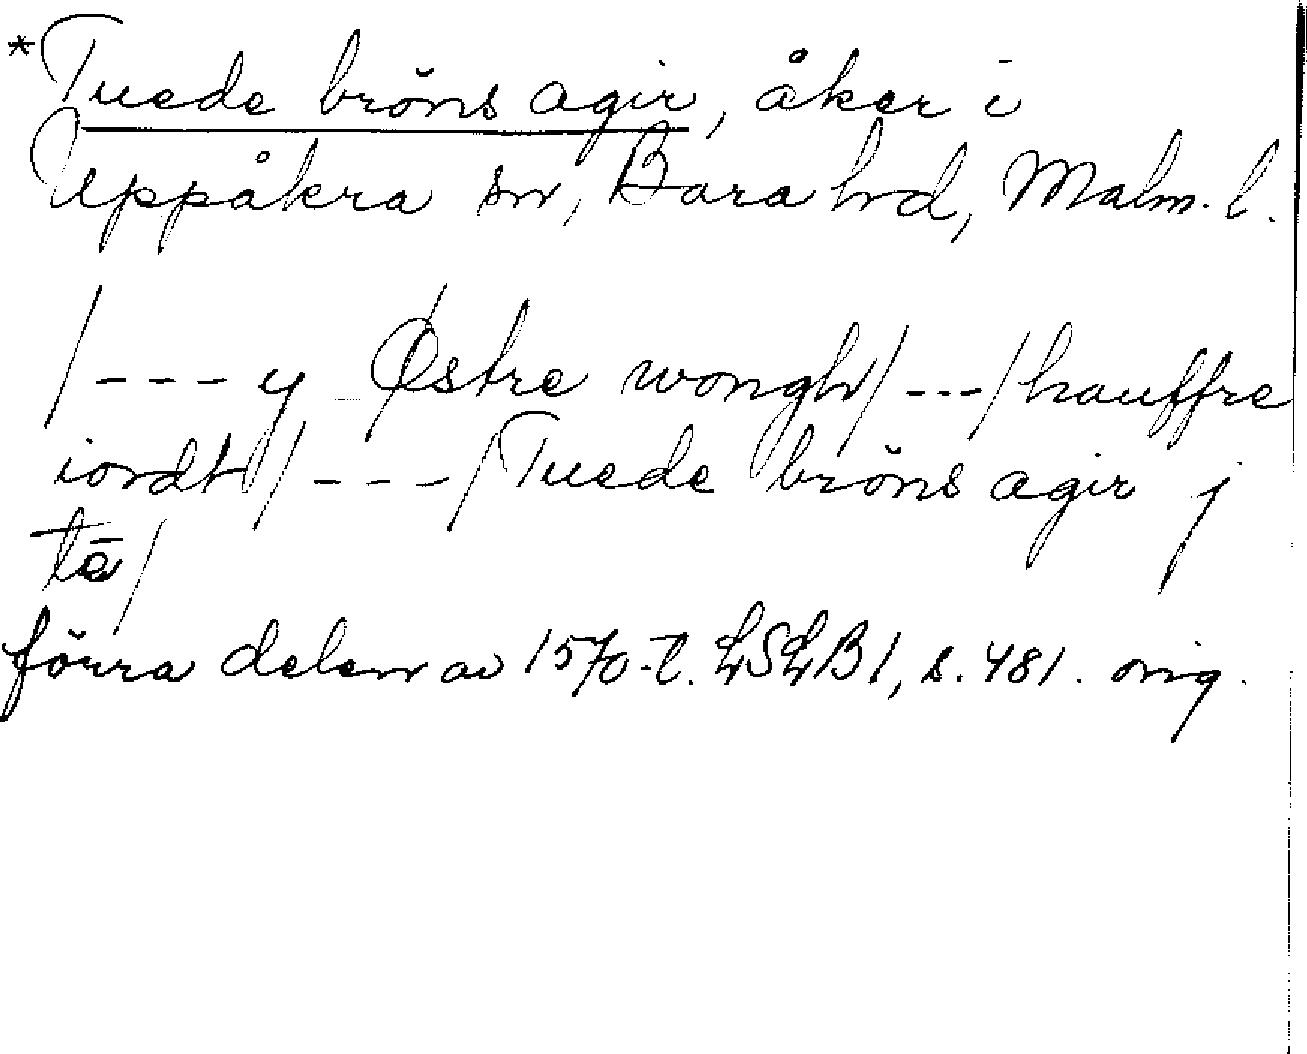 *Tuede bröns agir, åker i
Uppåkra sn, Bara hd, Malm. l.
/--- y Østre wongh/---/hauffre
iordt/---/Tuede bröns agir j
tē/
förra delen av 1570-t. LSLB1, s. 481. orig.